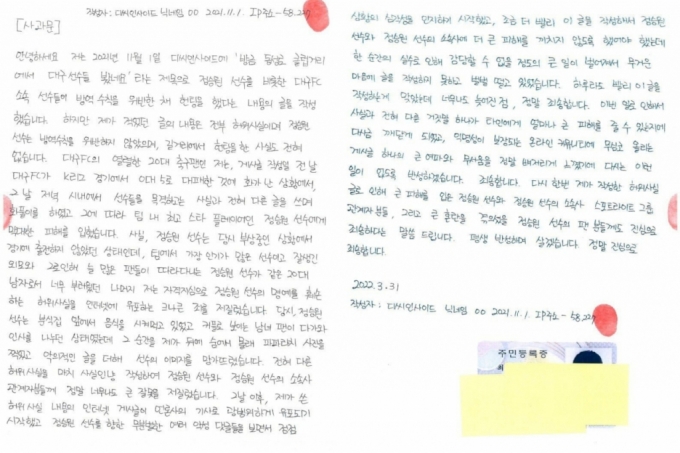 작성자 : 디씨인사이드 닉네임 00 2021.11.1 IP주소 - 58.229
[사과문]
안녕하세요 저는 2021년 11월 1일 디씨인사이드에 '방금 동성로 클럽거리
에서 대구선수들 봤네요' 라는 제목으로 정승원 선수를 비롯한 대구FC
소속 선수들이 방역 수칙을 위반한 채 헌팅을 했다는 내용의 글을 작성
했습니다. 하지만 제가 적었던 글의 내용은 전부 허위사실이며 정승원
선수는 방역수칙을 위반하지 않았으며, 길거리에서 헌팅을 한 사실도 전혀
없습니다. 대구FC의 열렬한 20대 축구팬인 저는, 게시글 작성일 전 날
대구FC가 K리그 경기에서 0대 5로 대패한 것에 화가 난 상황에서,
그 날 저녁 시내에서 선수들을 목격하는 사실과 전혀 다른 글을 쓰며
화풀이를 하였고 그에 따라 팀 내 최고 스타 플레이어인 정승원 선수에게
막대한 피해를 입혔습니다. 사실, 정승원 선수는 당시 부상중인 상황에서
경기에 출전하지 않았던 상태인데, 팀에서 가장 인기가 많은 선수이고 잘생긴
외모와 그로인해 늘 많은 팬들이 따라다니는 정승원 선수가 같은 20대
남자로서 너무 부러웠던 나머지 저는 자격지심으로 정승원 선수의 명예를 훼손
하는 허위사실을 인터넷에 유포하는 크나큰 죄를 저질렀습니다. 당시, 정승원
선수는 분식집 앞에서 음식을 시켜먹고 있었고 커플로 보이는 남녀 팬이 다가와
인사를 나누던 상태였는데 그 순간을 제가 뒤에 숨어서 몰래 파파라치 사진을
찍었고 악의적인 글을 더해서 선수의 이미지를 망가뜨렸습니다. 전혀 다른
허위사실을 마치 사실인냥 작성하여 정승원 선수와 정승원 선수의 소속사
관계자분들께 정말 너무나도 큰 잘못을 저질렀습니다. 그날 이후, 제가 쓴
허위사실 내용의 인터넷 게시글이 언론사의 기사로 광범위하게 유포되기
시작했고 정승원 선수를 향한 무분별한 여러 악성 댓글들을 보면서 점점
상황의 심각성을 인지하기 시작했고, 조금 더 빨리 이 글을 작성해서 정승원
선수와 정승원 선수의 소속사에 더 큰 피해를 끼치지 않도록 했어야 했는데
한 순간의 실수로 인해 감당할 수 없을 정도의 큰 일이 벌어져서 무거운
마음에 글을 작성하지 못하고 벌벌 떨고 있었습니다. 하루라도 빨리 이 글을
작성하는게 맞았는데 너무나도 늦어진 점, 정말 죄송합니다. 이번 일로 인해서
사실과 전혀 다른 거짓말 하나가 타인에게 얼마나 큰 피해를 줄 수 있는지에
다시금 깨닫게 되었고, 익명성이 보장되는 온라인 커뮤니티에 무심코 올리는
게시글 하나의 큰 여파와 무서움을 정말 뼈저리게 느꼈기에 다시는 이런
일이 없도록 반성하겠습니다. 죄송합니다. 다시 한번 제가 작성한 허위사실
글로 인해 큰 피해를 입은 정승원 선수와 정승원 선수의 소속사 스포트라이트 그룹
관계자분들, 그리고 큰 혼란을 겪었을 정승원 선수의 팬 분들께도 진심으로
죄송하다는 말씀 드립니다. 평생 반성하며 살겠습니다. 정말 진심으로
죄송합니다.
2022.3.31
작성자 : 디씨인사이드 닉네임 00 2021.11.1 IP주소 - 58.229
주민등록증